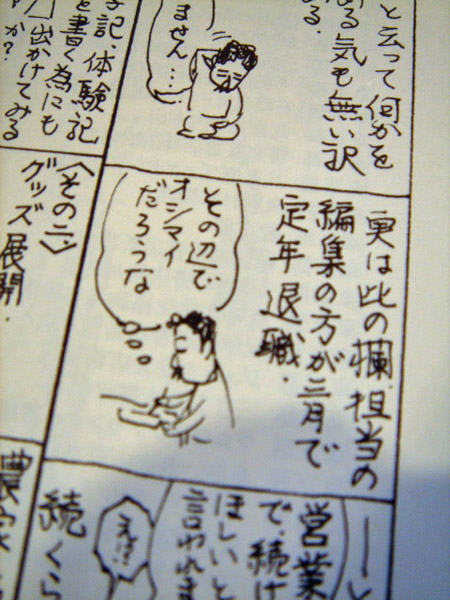 と云って何かを
る気も無い訳
る.
ません…
記、体験記
を書く為にも
出かけてみる
か?
実は此の欄担当の
編集の方が三月で
定年退職.
その辺で
オシマイ
だろうな
〈その二〉
グッズ展開.
営業
で、続け
ほしいと
言われま
続くら
農家